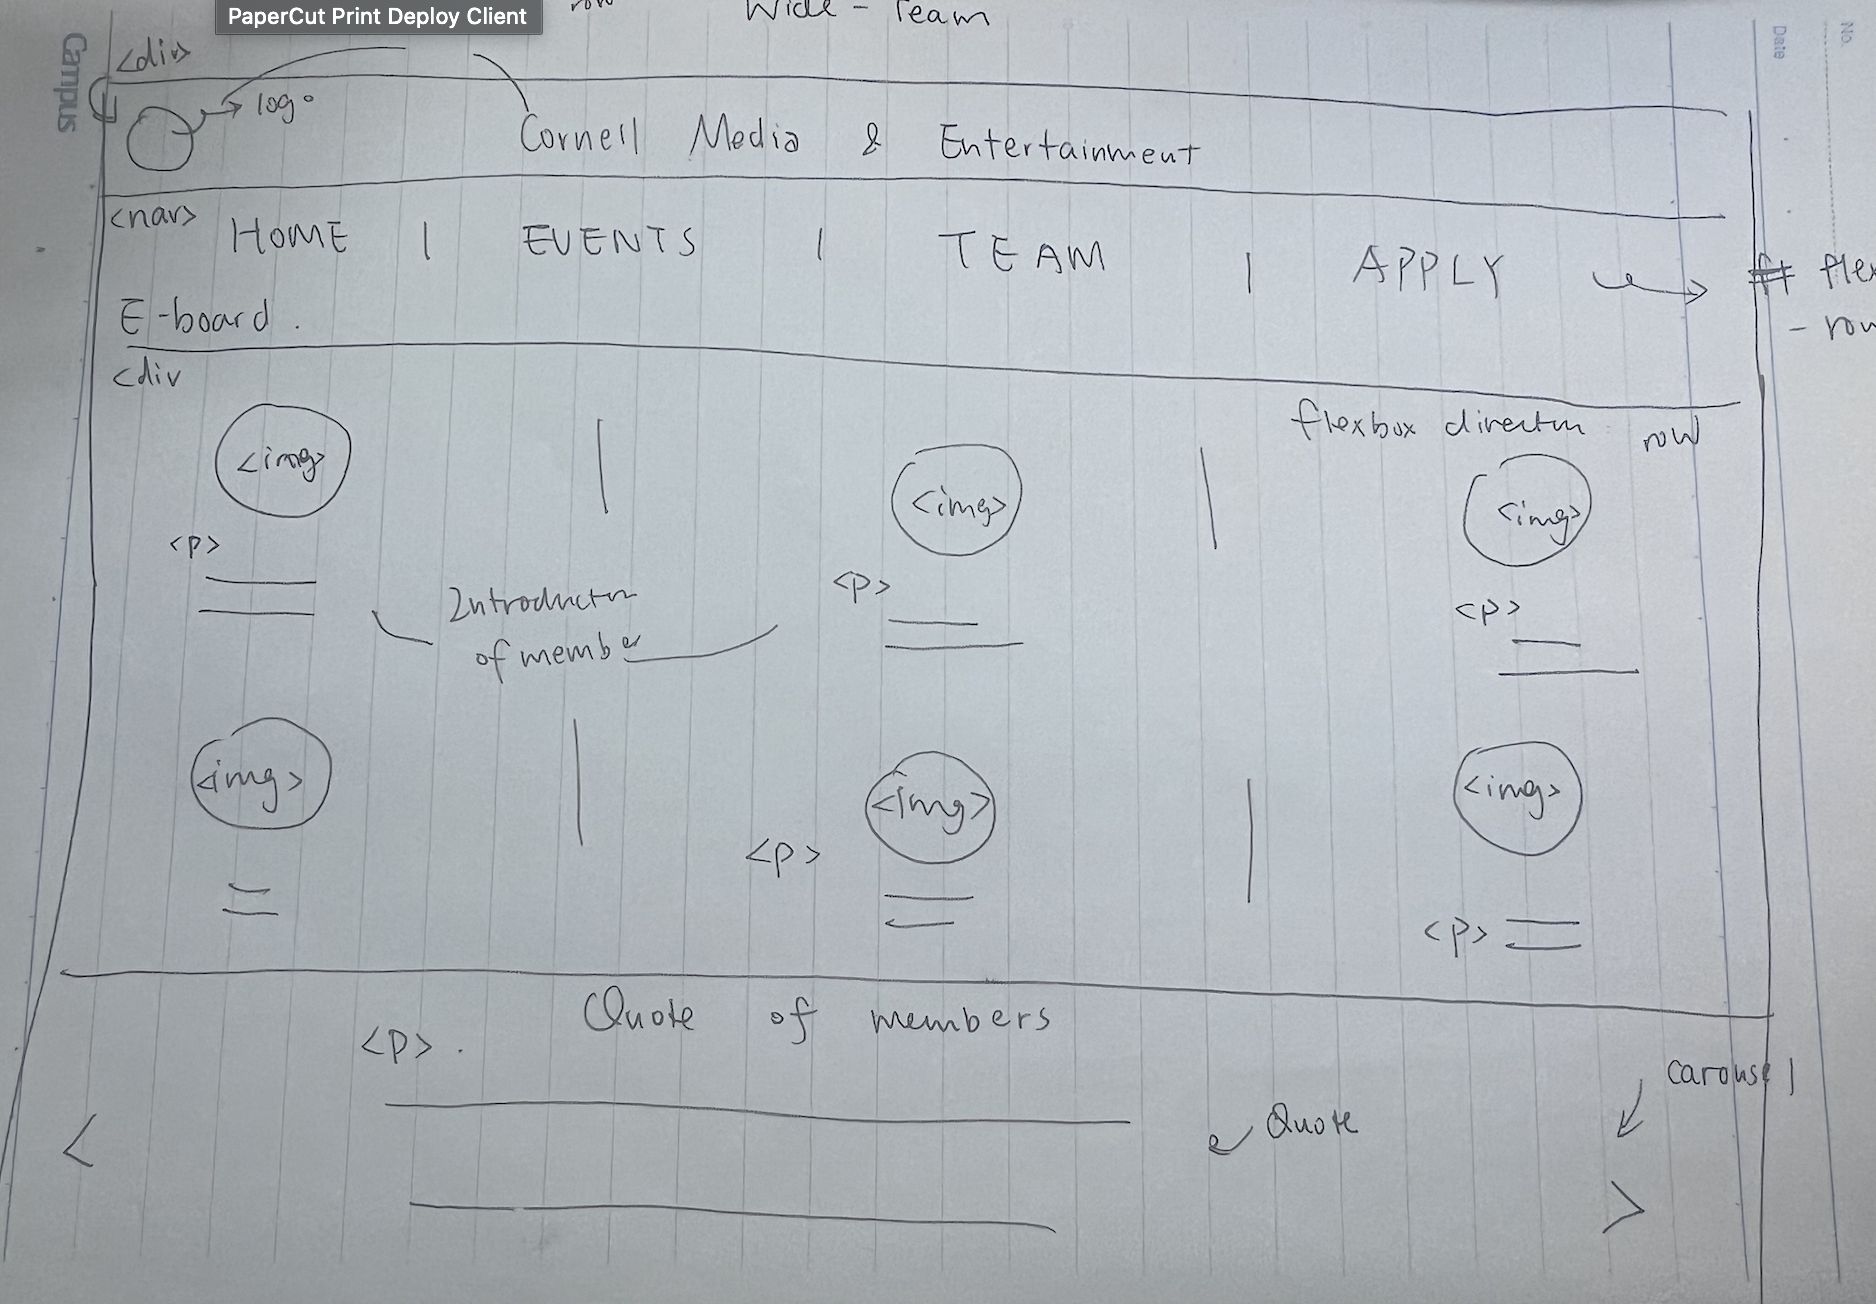 PaperCut Print Deploy Client
row
Wide - Team
Campus
No.
Date
<div>
logo
Cornell Media & Entertainment
<nav>
HOME | EVENTS | TEAM | APPLY
flex
- row
E-board.
<div
flexbox direction row
<img>
<img>
<img>
<p>
<p>
<p>
Introduction
of member
<img>
<img>
<img>
<p>
<p>
Quote of members
<p>.
carousel
<
Quote
>